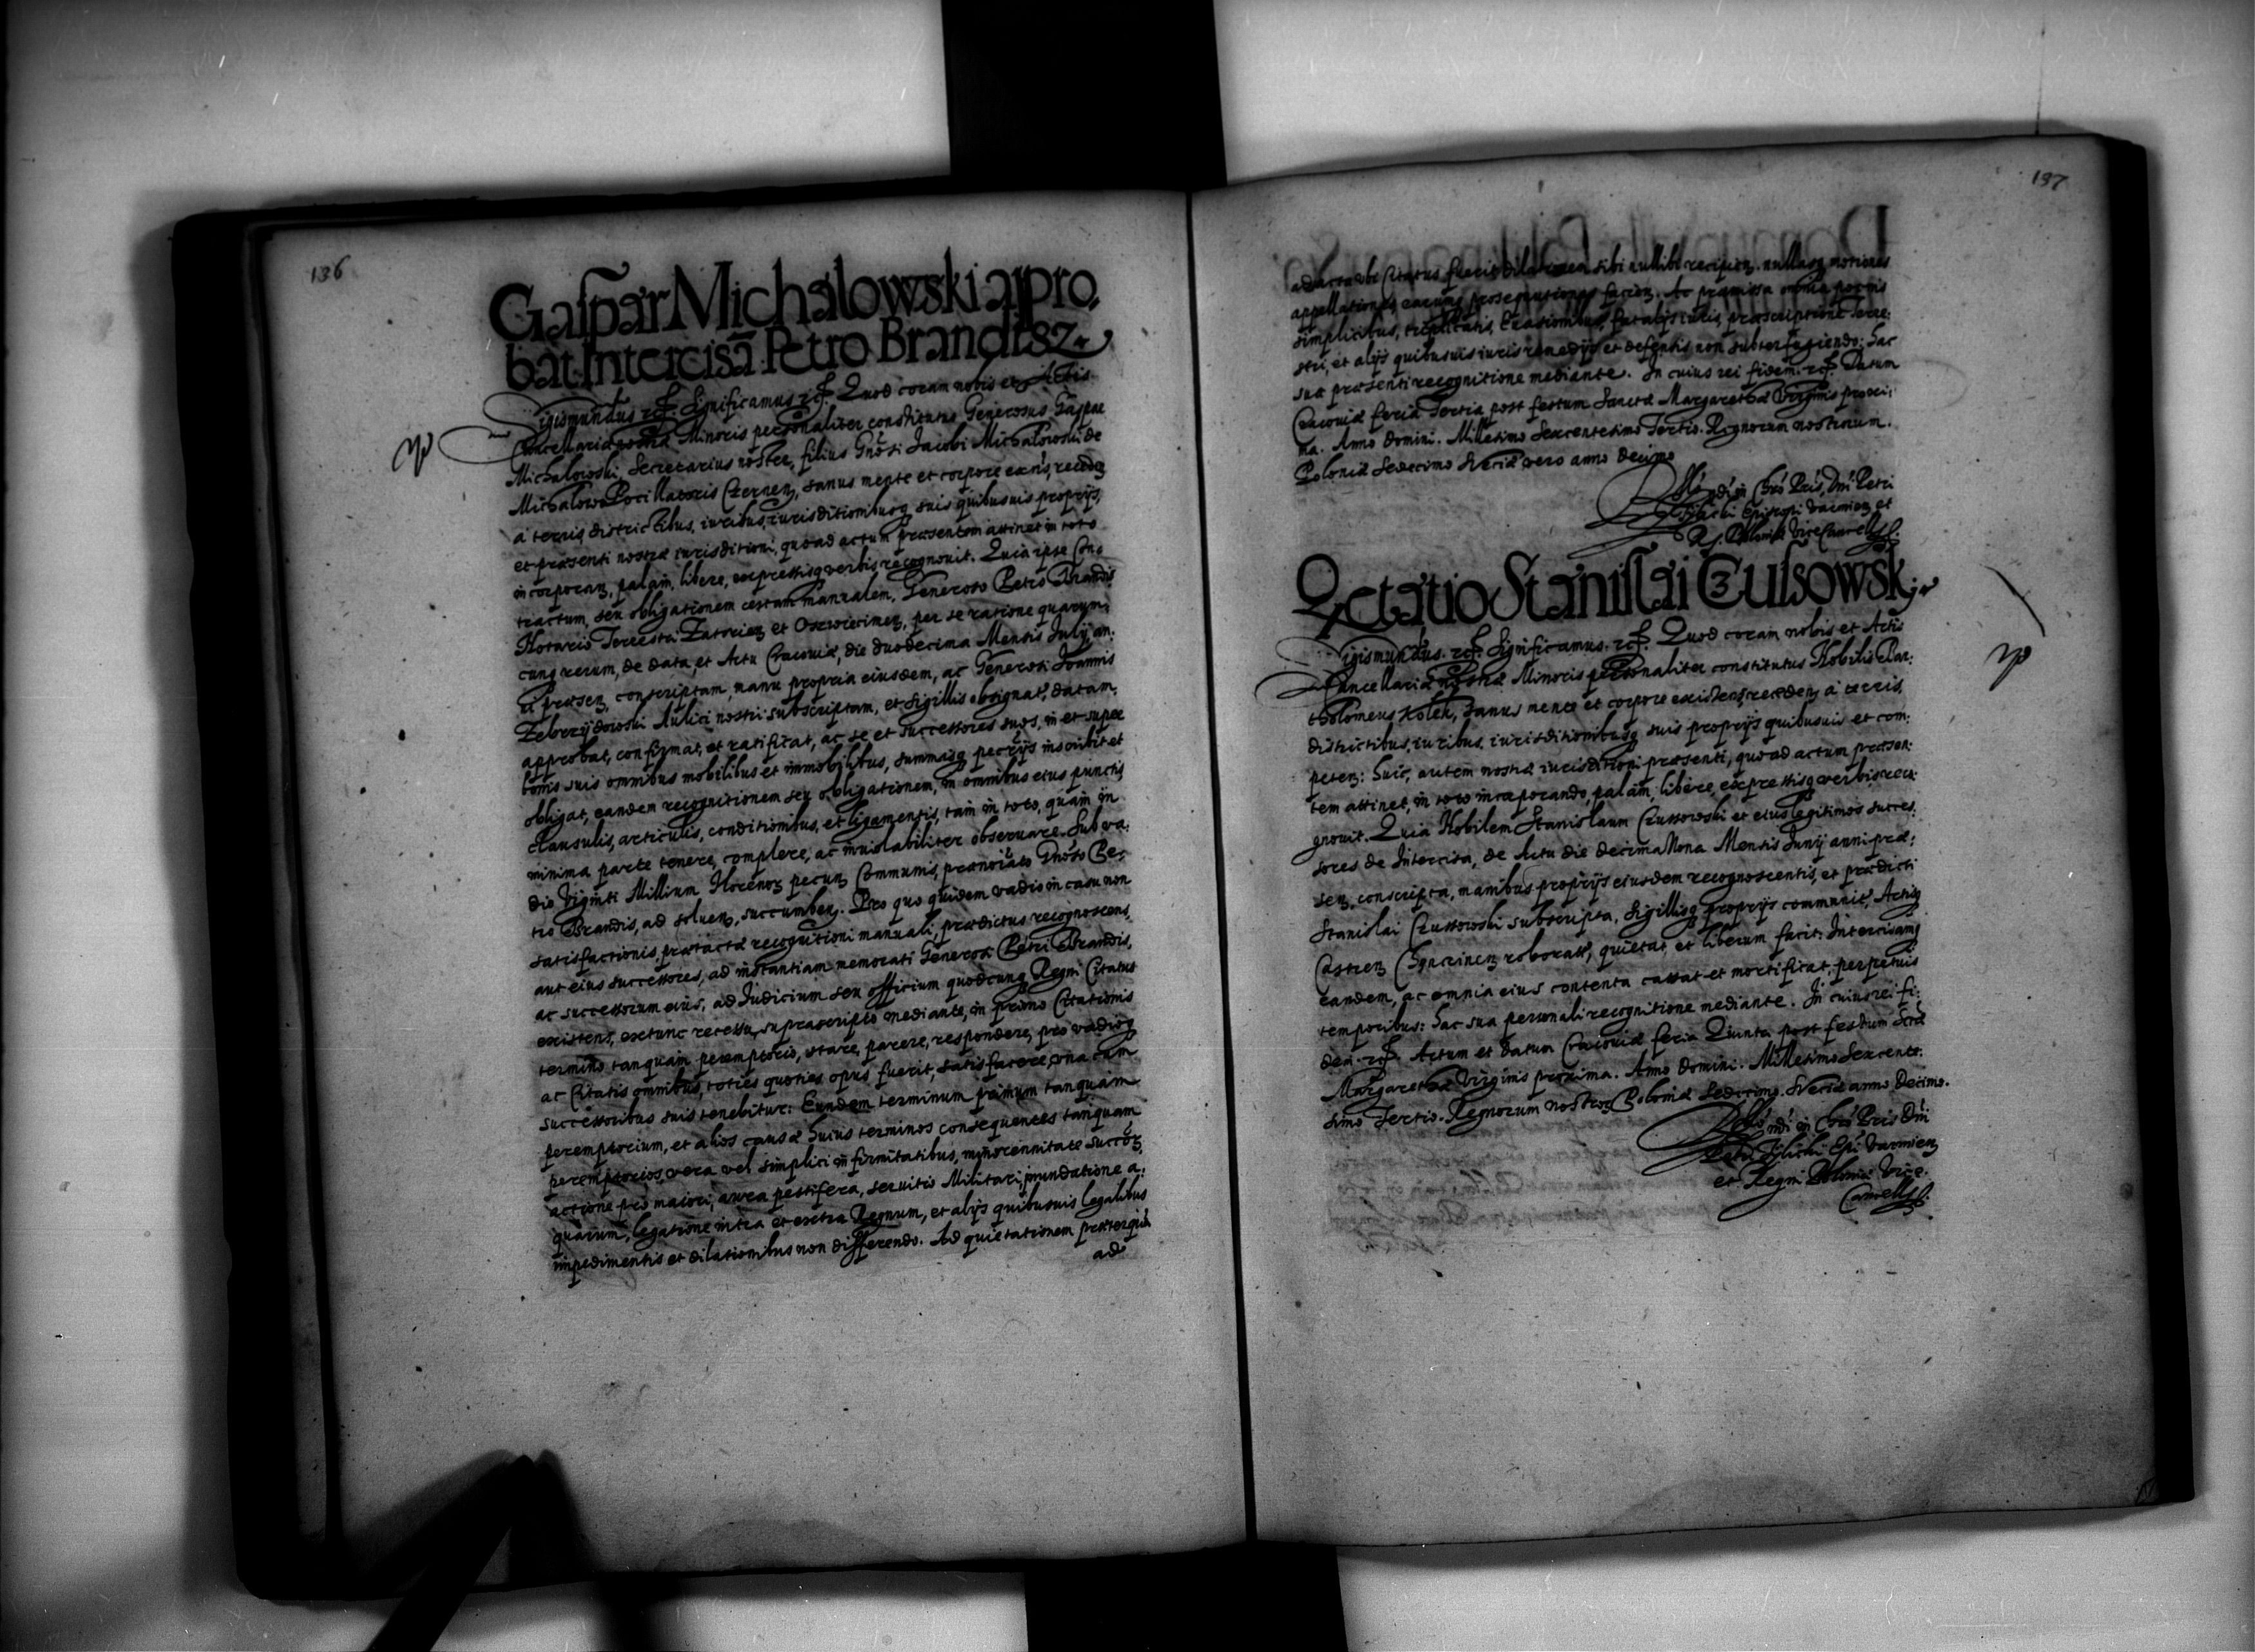 136
Gaspar Michalowski appro,
bat Intercisã Petro Brandisz.
Sigismundus etc. Significamus etc. Quod coram nobis et Actis
Cancellariæ nostræ Minoris personaliter constitutus Generosus Gaspar
Michalowski Secretarius noster, filius Gnosi Jacobi Michalowski de
Michalow Pocillatoris Czernen, sanus mente et corpore exns, receden
a terris, districtibus, iuribus, iurisditionibusq suis quibusuis proprijs,
et præsenti nostræ iurisditioni, quo ad actum præsentem attinet in toto
incorporan, palam, libere, expressisq verbis recognouit. Quia ipse Con,
tractum, seu obligationem certam manualem, Generoso Petro Brandis
Notario Terrestri Zatorien et Oswiecimen, per se ratione quarum,
cunq rerum, de data, et Actu Cracouiæ, die duodecima Mensis July, an,
ni præsen, conscriptam, manu propria eiusdem, ac Generosi Joannis
Zebrzydowski Aulici nostri subscriptam, et sigillis obsignat, datam,
approbat, confirmat, et ratificat, ac se et successores suos, in et super
bonis suis omnibus mobilibus et immobilibus, summisq pecrijs inscribit et
obligat, eandem recognitionem seu obligationem, in omnibus eius punctis
clausulis, articulis, conditionibus, et ligamentis, tam in toto, quam in
minima parte tenere, complere, ac inuiolabiliter obseruare. Sub va,
dio Viginti Millium florenor pecun Communis, prænoiato Gnoso Pe,
tro Brandis, ad soluen, succumben. Pro quo quidem vadio in casu non
satisfactionis, prætactæ recognitioni manuali, prædictus recognoscens,
aut eius successores, ad instantiam memorati Generosi Petri Brandis,
ac successorum eius, ad Judicium seu officium quodcunq Regni Citatus
existens, extunc recessu, suprascripto mediante, in primo Citationis
termino tanquam peremptorio, stare, parere, respondere, pro vadioq
ac Citatis omnibus, toties quoties opus fuerit, satisfacere, vna cum
successoribus suis tenebitur: Eundem terminum primum tanquam
peremptorium, et alios causæ huius terminos consequentes tanquam
peremptorios, vera vel simplici infirmitatibus, minorennitate succor,
actione pro maiori, aura pestifera, seruitio Militari, inundatione a,
quarum, legatione intra et extra Regnum, et alijs quibusuis legalibus
impedimentis et dilationibus non differendo. Ad quietationem præterqua
ad
137
ad acta vbi Citatus fuerit dilationem sibi nullibi recipien. nullasq motiones
appellationes, earumq prosequutiones facien. Ac præmissa omnia poenis
simplicibus, triplicatis, Euasionibus, fatalijs iuris, præscriptione Terre,
stri, et alijs quibusuis iuris remedijs et defensis non subterfugiendo: Hac
sua præsenti recognitione mediante. In cuius rei fidem. etc. Datum
Cracouiæ feria Tertia post festum Sanctæ Margarethæ Virginis proxi,
ma. Anno Domini. Millesimo Sexcentesimo Tertio. Regnorum nostrorum.
Poloniæ Sedecimo Sueciæ vero anno Decimo
Rllo ndi in Chro Pris, Dni Petri
Tilicki Episcopi Varmien et
R. Poloniæ ViceCancellr.
Qctatio Stanislai Czusowsk;
Sigismundus. etc. Significamus. etc. Quod coram nobis et Actis
Cancellariæ nostræ Minoris personaliter constitutus Nobilis Bar,
tholomeus Kolek, sanus mente et corpore existens, receden a terris,
districtibus, iuribus, iurisditionibusq suis proprijs quibusuis et com,
peten: huic, autem nostræ iurisditioni præsenti, quo ad actum præsen,
tem attinet, in toto incorporando, palam, libere, expressisq verbis reco,
gnouit. Quia Nobilem Stanislaum Czussowski et eius legitimos succes,
sores de Intercisa, de Actu die decima Nona Mensis Junij anni præ,
sen, conscripta, manibus proprijs eiusdem recognoscentis, et prædicti
Stanislai Czussowski subscripta, Sigillisq proprijs communit, Actisq
Castren roborata, quietat, et liberum facit: Intercisamq
eandem, ac omnia eius contenta cassat et mortificat, perpetuis
temporibus: hac sua personali recognitione mediante. In cuius rei fi,
dem. etc. Actum et Datum Cracouiæ feria Quinta post festum Sctæ
Margarethæ Virginis proxima. Anno Domini. Millesimo Sexcente,
simo Tertio. Regnorum nostror Poloniæ Sedecimo. Sueciæ anno Decimo.
Rllo ndi in Chro Pris Dni
Petri Tilicki Epi Varmien
et Regni Poloniæ Vice,
Cancellr.